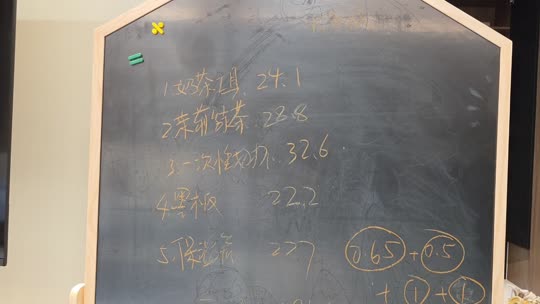 1.奶茶工具. 24.1
2茉莉绿茶. 28.8
3.一次性奶杯. 32.6.
4.黑板 22.2
5.保温 227
0.65 + 0.5
+ 1 + 1